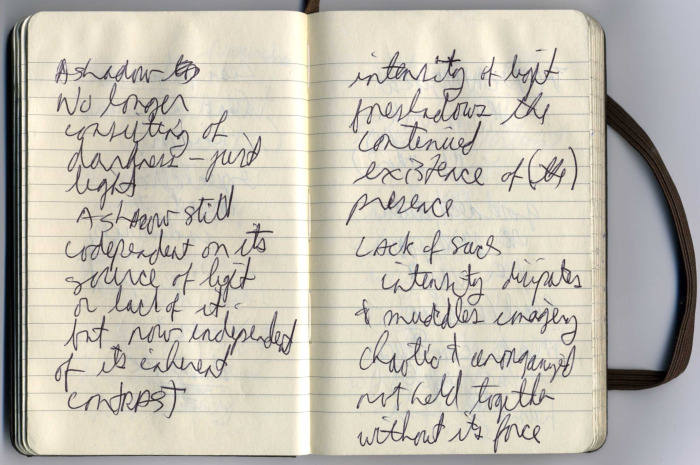 A shadow
No longer
consisting of
darkness – just
light
A shadow still
codependent on its
source of light
or lack of it.
but now independent
of its inherent
CONTRAST
intensity of light
foreshadows the
continued
existence of (the)
presence
Lack of such
intensity dissipates
& muddles imagery
chaotic & unorganized
not held together
without its force